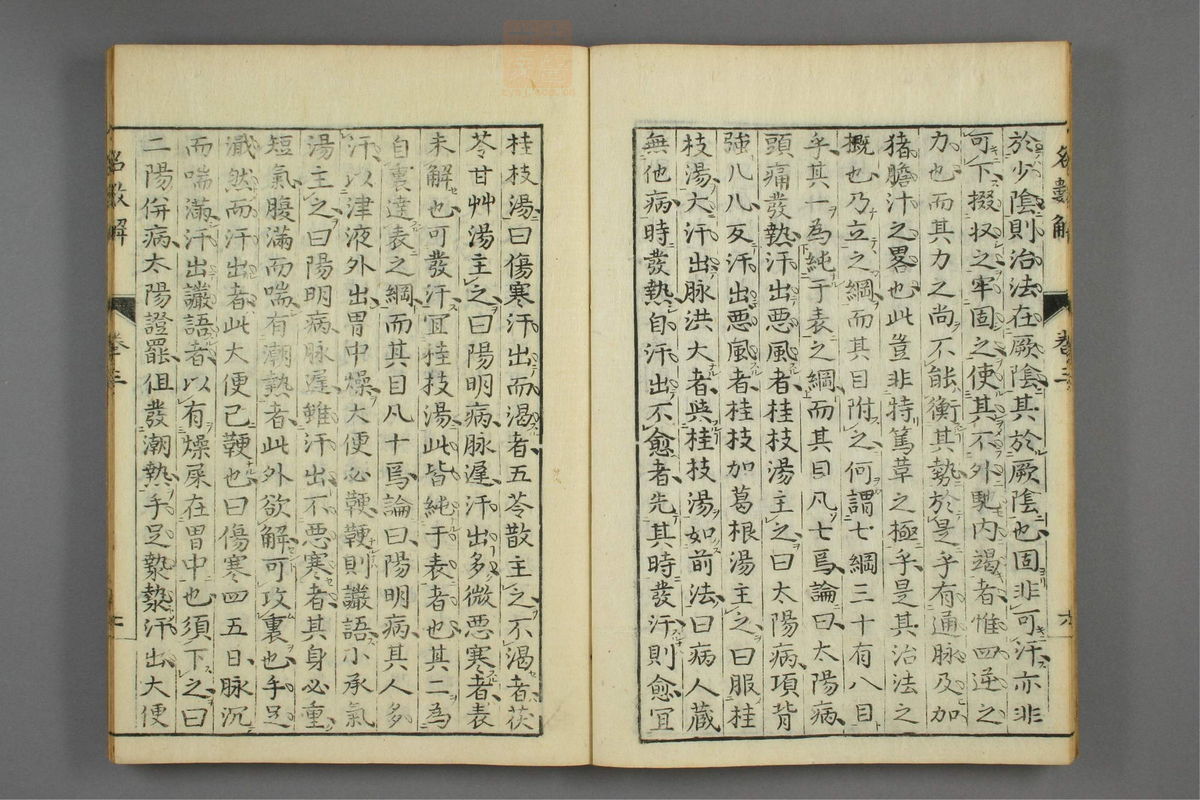 於少陰則治法在厥陰其於厥陰也固非可汗亦非
可下掇収之牢固之使其不外馳內竭者惟四逆之
力也而其力之尚不能衡其勢於是乎有通脉及加
猪膽汁之畧也此豈非特篤草之極乎是其治法之
概也乃立之綱而其目附之何謂七綱三十有八目
乎其一為純于表之綱而其目凡七焉論曰太陽病
頭痛發熱汗出惡風者桂枝湯主之曰太陽病項背
強几几反汗出惡風者桂枝加葛根湯主之曰服桂
枝湯大汗出脉洪大者與桂枝湯如前法曰病人蔵
無他病時發熱自汗出不愈者先其時發汗則愈冝
桂枝湯曰傷寒汗出而渴者五苓散主之不渴者茯
苓甘艸湯主之曰陽明病脉遲汗出多微惡寒者表
未解也可發汗冝桂枝湯此皆純于表者也其二為
自裏達表之綱而其目凡十焉論曰陽明病其人多
汗以津液外出胃中燥大便必鞕鞕則讝語小承氣
湯主之曰陽明病脉遲雖汗出不惡寒者其身必重
短氣腹滿而喘有潮熱者此外欲解可攻裏也手足
濈然而汗出者此大便已鞕也曰傷寒四五日脉沉
而喘滿汗出讝語者以有燥屎在胃中也須下之曰
二陽併病太陽證罷但發潮熱手足漐漐汗出大便
名數解
卷三
六
名數解
卷三
七